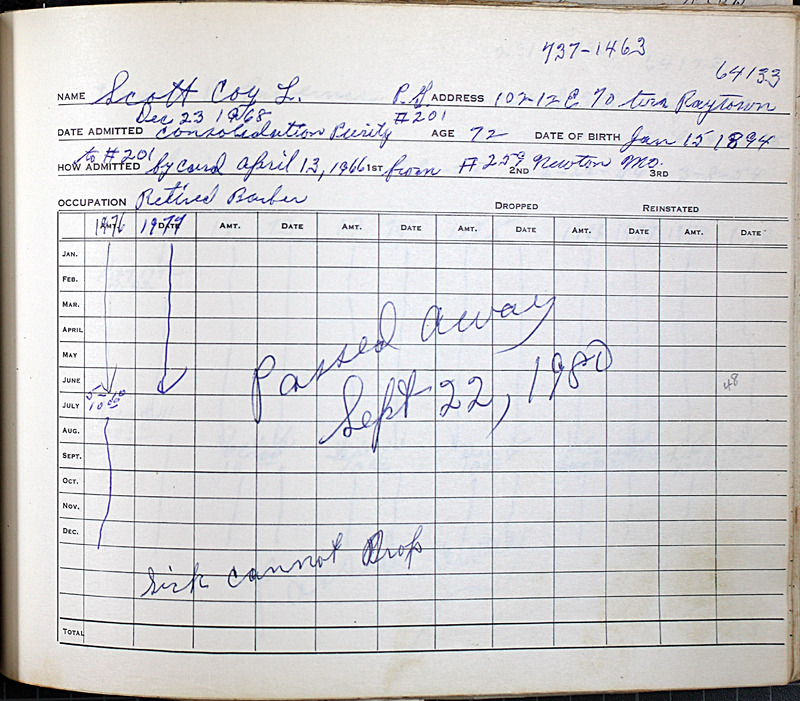 737-1463
64133
NAME Scott Coy L. ADDRESS 10212 E 70 terr Raytown
Dec 23 1968 #201
DATE ADMITTED Consolidation Purity AGE 72 DATE OF BIRTH Jan 15 1894
to #201
HOW ADMITTED by card April 13, 1966 1ST from #259 2ND Newton Mo. 3RD
OCCUPATION Retired Barber DROPPED REINSTATED
1976 1977
AMT. DATE AMT. DATE AMT. DATE AMT. DATE AMT. DATE AMT. DATE
JAN.
FEB.
MAR.
APRIL
MAY
JUNE
JULY
AUG.
SEPT.
OCT.
NOV.
DEC.
Passed away
Sept 22, 1980
48
Sick cannot Drop
TOTAL